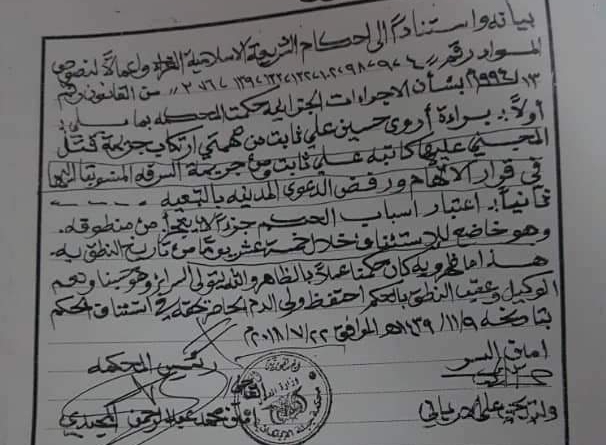 بيانه واستناداً إلى احكام الشريعة الاسلامية الغراء واعمالاً لنصوص
المواد رقم 4، 9، 98، 102، 132، 139، 276 من القانون رقم
13 / 1994م بشأن الاجراءات الجزائية حكمت المحكمه بما يلي:
أولاً: براءة أروى حسين علي ثابت من تهمتي ارتكاب جريمة قتل
المجني عليها كاتبه علي ثابت وجريمة السرقه المنسوبتا اليها
في قرار الاتهام ورفض الدعوى المدنيه بالتبعيه
ثانياً: اعتبار اسباب الحكم جزءً لا يتجزأ من منطوقه.
وهو خاضع للاستئناف خلال خمسة عشر يوماً من تاريخ النطق به.
هذا ما ظهر وبه كان حكمنا عملاً بالظاهر والله يتولى السرائر وهو حسبنا ونعم
الوكيل وعقب النطق بالحكم احتفظ ولي الدم الحاضر بحقه في استئناف الحكم
بتاريخه 9/11/1439هـ الموافق 22/7/2018م
امين السر
رئيس المحكمه
القاضي محمد عبدالرحمن